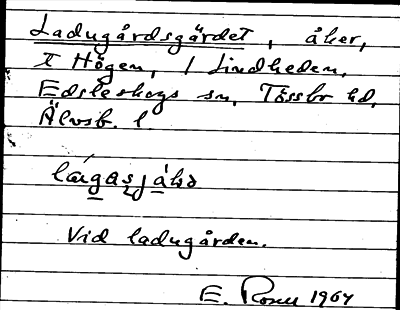 Ladugårdsgärdet, åker,
Högen, / Lindheden,
Edsleskogs sn, Tössbo hd,
Älvsb. l.
Vid ladugården.
E. 1964